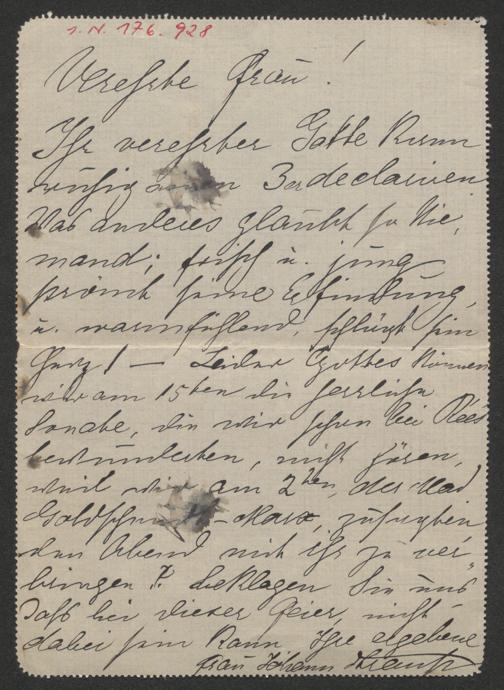 I. N. 176.928
Verehrte Frau!
Ihr verehrter Gatte kann
ruhig 3 declariren
Was anderes glaubt ja Nie,
mand; frisch u. jung
strömt seine Erfindung,
u. warmfühlend, schlägt sein
Herz! — Leider Gottes können
wir am 15ten die herrliche
Sonate, die wir schon bei Rées
bewunderten, nicht hören,
weil wir am 2ten, der Mad
Goldschmidt-Marx, zusagten
den Abend mit ihr zu ver,
bringen. Beklagen Sie uns
daß bei dieser Feier, nicht
dabei sein kann Ihre ergebene
Frau Johann Strauss